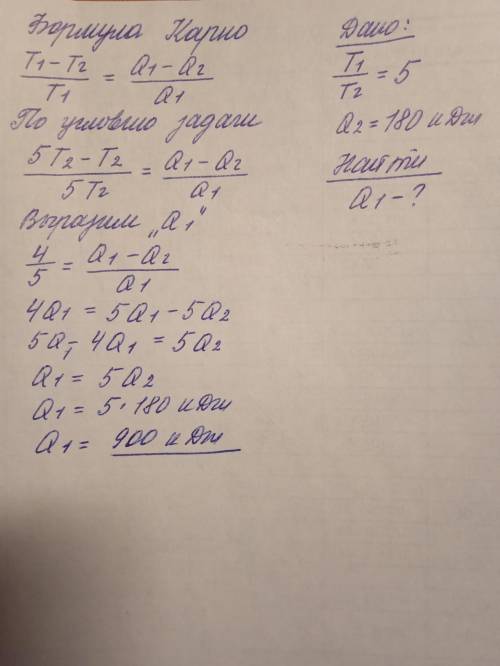 Формула Карно
T1-T2/T1 = Q1-Q2/Q1
По условию задачи
5T2-T2/5T2 = Q1-Q2/Q1
Выразим „Q1"
4/5 = Q1-Q2/Q1
4Q1 = 5Q1-5Q2
5Q1-4Q1 = 5Q2
Q1 = 5Q2
Q1 = 5·180 кДж
Q1 = 900 кДж
Дано:
T1/T2 = 5
Q2 = 180 кДж
Найти
Q1-?